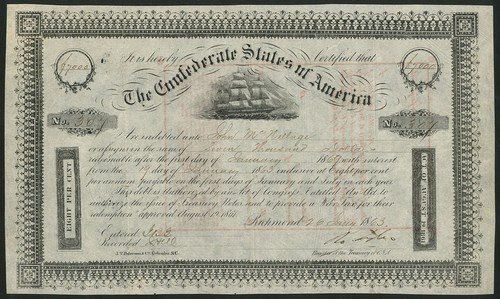 It is hereby Certified that
$7000
$7000
The Confederate States of America
No. 
No. 
Are indebted unto John
or assigns in the sum of Seven Thousand Dollars
redeemable after the first day of January 186 with interest
from the day of January 1863 inclusive at Eight per cent
per annum payable on the first days of January and July in each year
This debt is authorized by an Act of Congress Entitled "An Act to
authorize the issue of Treasury Notes and to provide a War Tax for their
redemption" approved August 19, 1861
Richmond 26 1863
Entered
Recorded
Register of the Treasury C.S.A.
EIGHT PER CENT
ACT OF AUGUST 19, 1861